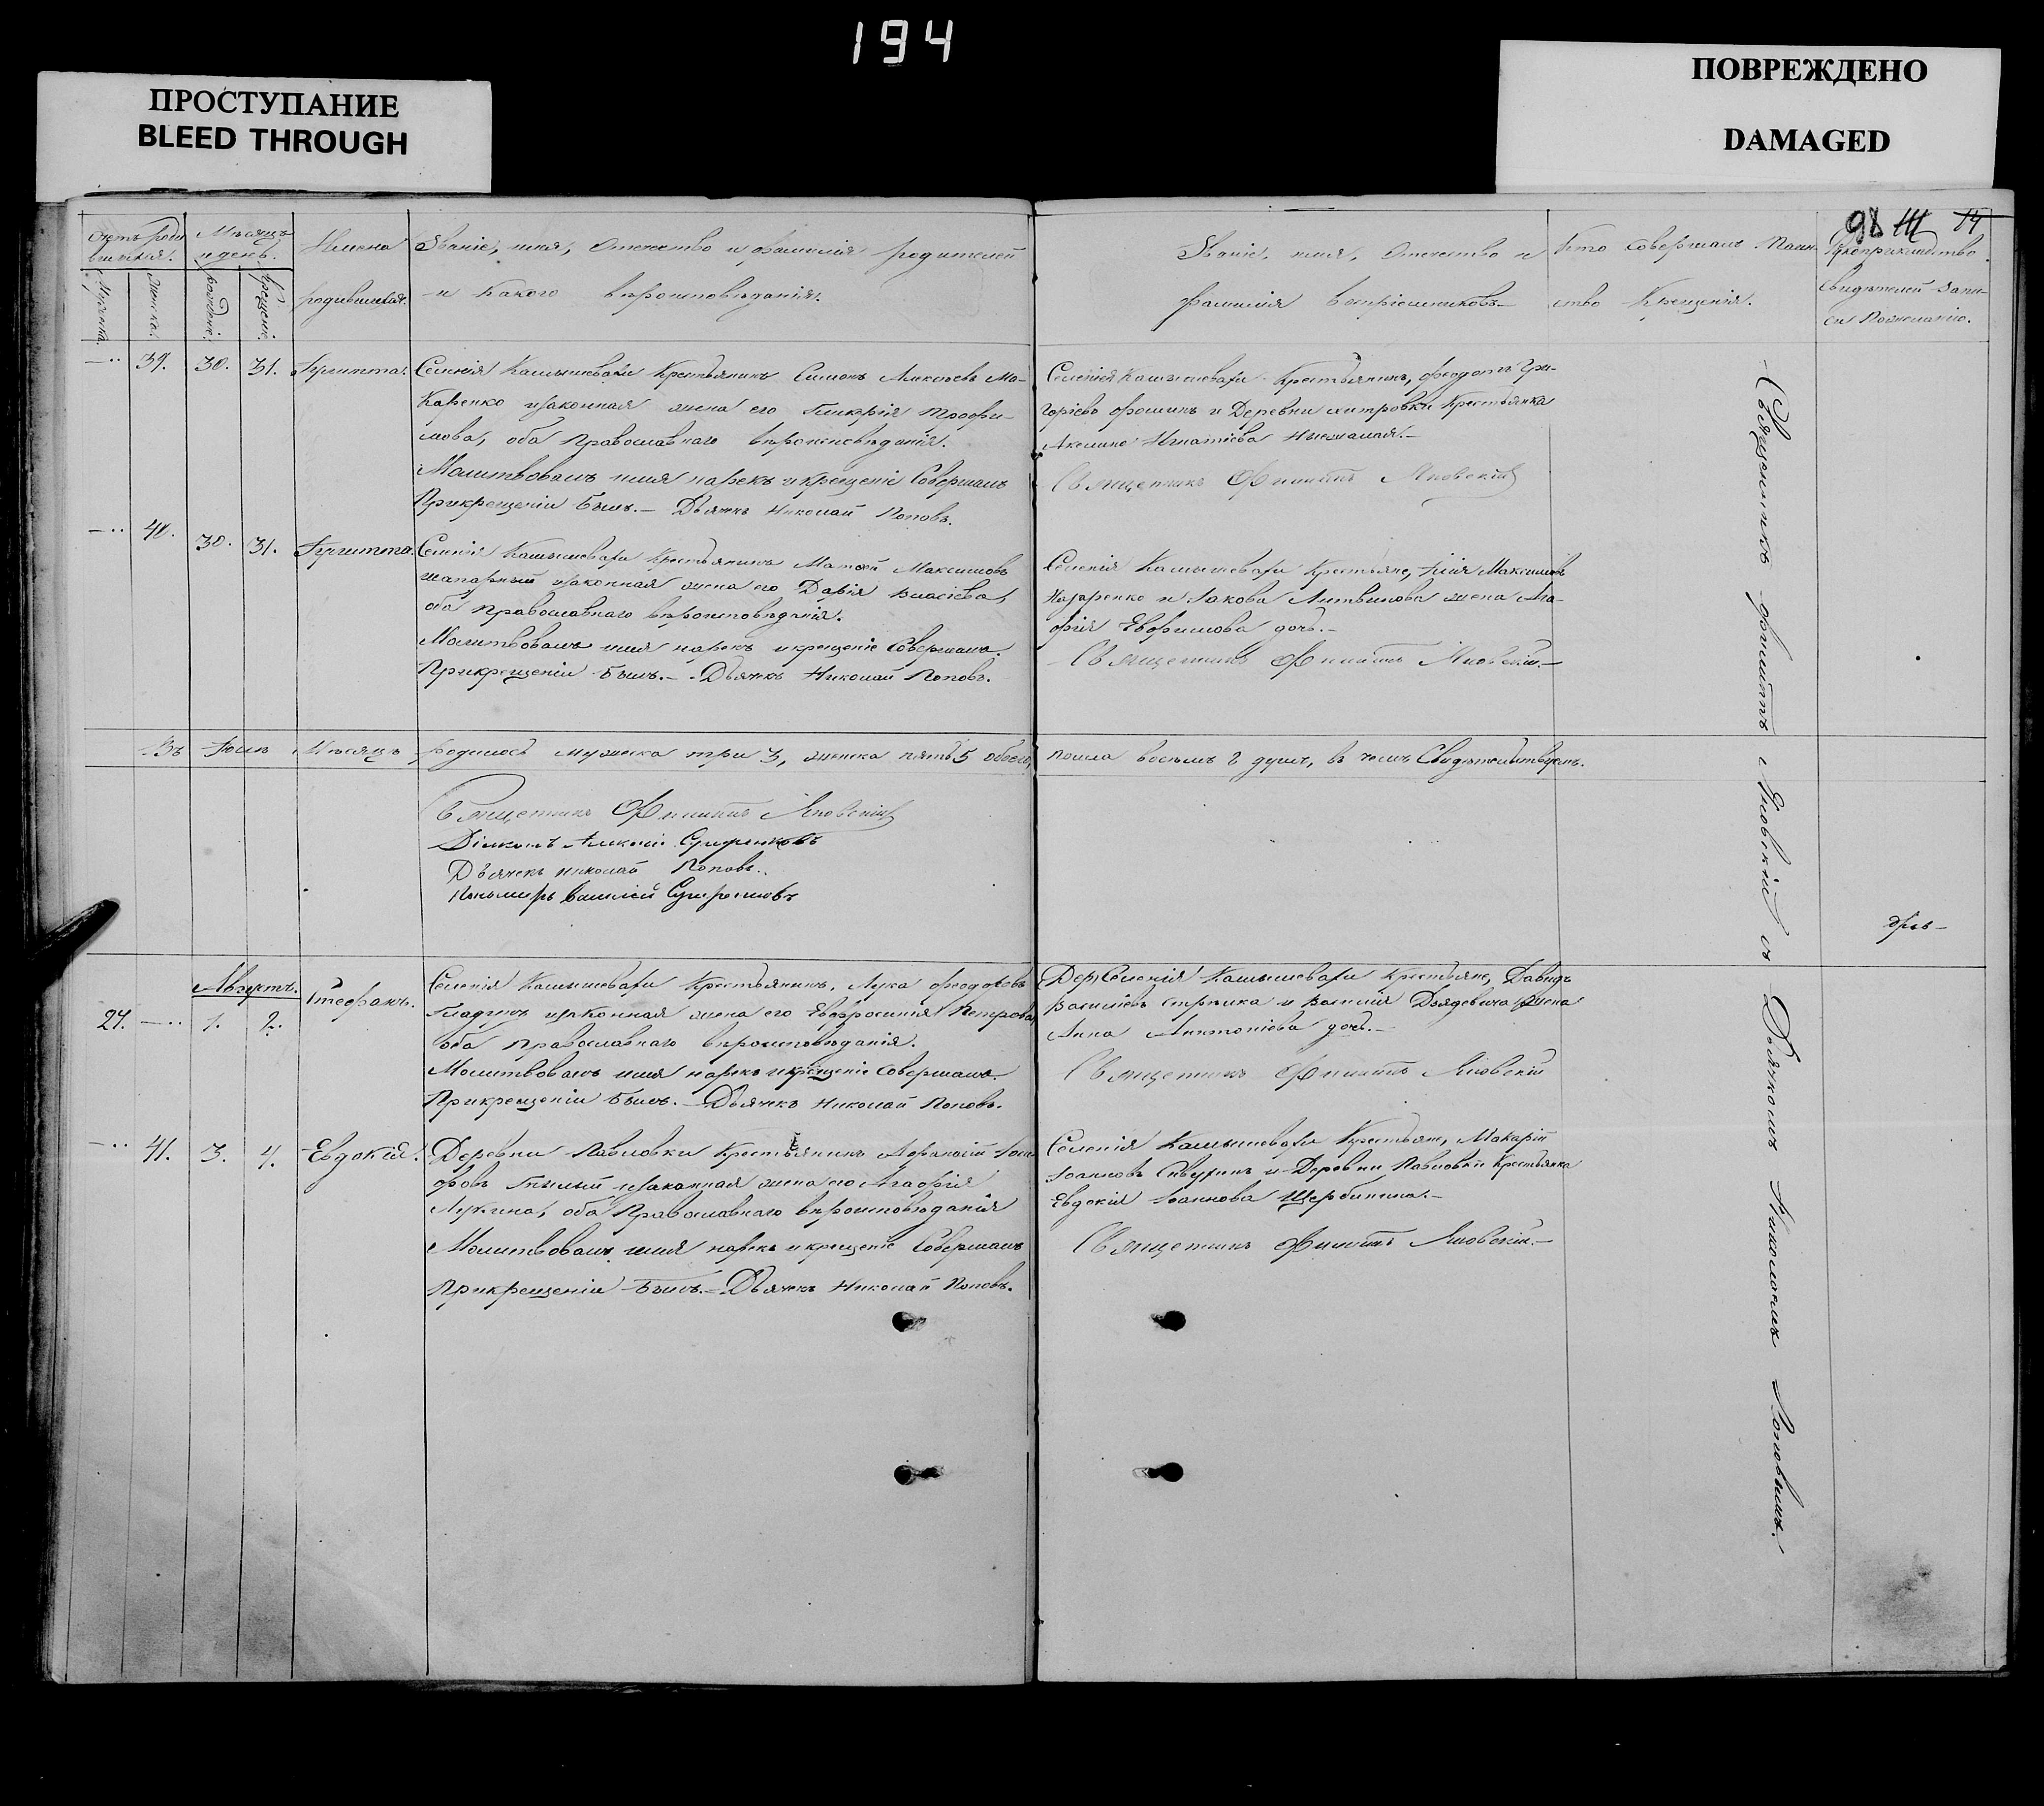 194
ПРОСТУПАНИЕ
BLEED THROUGH
ПОВРЕЖДЕНО
DAMAGED
98 14
Счетъ роди
вшихся.
Мужеска.
Женска.
Мѣсяцъ
и день.
рожденіе.
крещеніе.
Имена
родившихся.
Званіе, имя, Отчество и фамилія родителей
и Какого вѣроисповѣданія.
Званіе, имя, Отчество и
фамилія Воспріемниковъ
Кто Совершалъ Таин-
ство Крещенія.
Рукоприкладство
Свидѣтелей запи-
си По желанію.
39. 30. 31. Іулитта.
Селенія Камышевахи Крестьянинъ Симонъ Алексѣевъ Ма-
каренко изаконная жена его Гликерія Трофи-
мова, оба Православнаго вѣроисповѣданія.
Молитвовалъ имя нарекъ и крещеніе Совершалъ
Прикрещеніи Былъ.- Дьячекъ Николай Поповъ.
Селенія Камышевахи Крестьянинъ, Феодотъ Гри-
горіевъ и Деревни Крестьянка
Акелина Игнатіева
Священникъ Филиппъ Яновскій
40. 30. 31. Іулитта.
Селенія Камышевахи Крестьянинъ Матѳей Максимовъ
изаконная жена его Дарія Власіева,
оба Православнаго вѣроисповѣданія.
Молитвовалъ имя нарекъ и крещеніе Совершалъ.
Прикрещеніи Былъ.- Дьячекъ Николай Поповъ.
Селенія Камышевахи Крестьяне, Илія Максимовъ
Назаренко и Іакова Литвинова жена Ага-
фія Евфимова дочь.-
Священникъ Филиппъ Яновскій.-
Въ Іюлѣ Мѣсяцѣ родилось мужеска три 3, женска пять 5 обоего
пола восемь 8 душъ, въ чемъ Свидѣтельствуемъ.
Священникъ Филиппъ Яновскій
Діаконъ Алексій
Дьячекъ Николай Поповъ.
Пономарь Василій
Августъ.
27. 1. 2. Стефанъ.
Селенія Камышевахи Крестьянинъ, Лука Феодоровъ
Гладунъ изаконная жена его Евфросинія Петрова
оба Православнаго вѣроисповѣданія.
Молитвовалъ имя нарекъ и крещеніе Совершалъ.
Прикрещеніи Былъ.- Дьячекъ Николай Поповъ.
Селенія Камышевахи Крестьяне, Давидъ
Василіевъ и Василія жена
Анна Антоніева дочь.-
Священникъ Филиппъ Яновскій
41. 3. 4. Евдокія.
Деревни Павловки Крестьянинъ Афанасій
изаконная жена его Агафія
Лукина, оба Православнаго вѣроисповѣданія
Молитвовалъ имя нарекъ и крещеніе Совершалъ
Прикрещеніи Былъ.- Дьячекъ Николай Поповъ.
Селенія Камышевахи Крестьяне, Макарій
Іоанновъ и Деревни Павловки Крестьянка
Евдокія Іоаннова Щербинина.-
Священникъ Филиппъ Яновскій.-
Священникъ Филиппъ Яновскій съ Дьячкомъ Николаемъ Поповымъ.